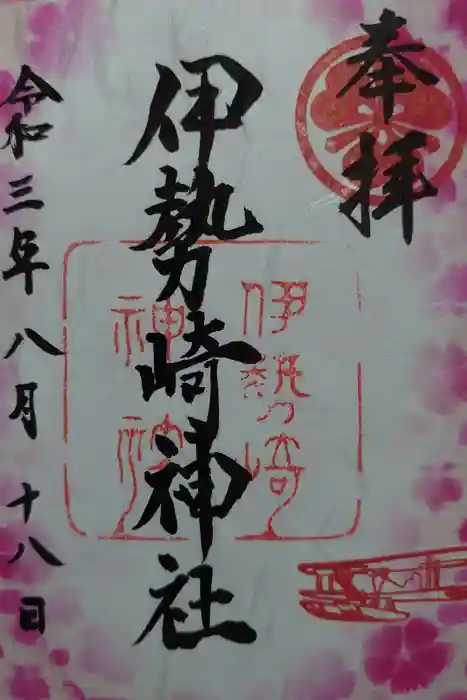 奉拝
伊勢崎神社
伊勢崎
神社
令和三年八月十八日